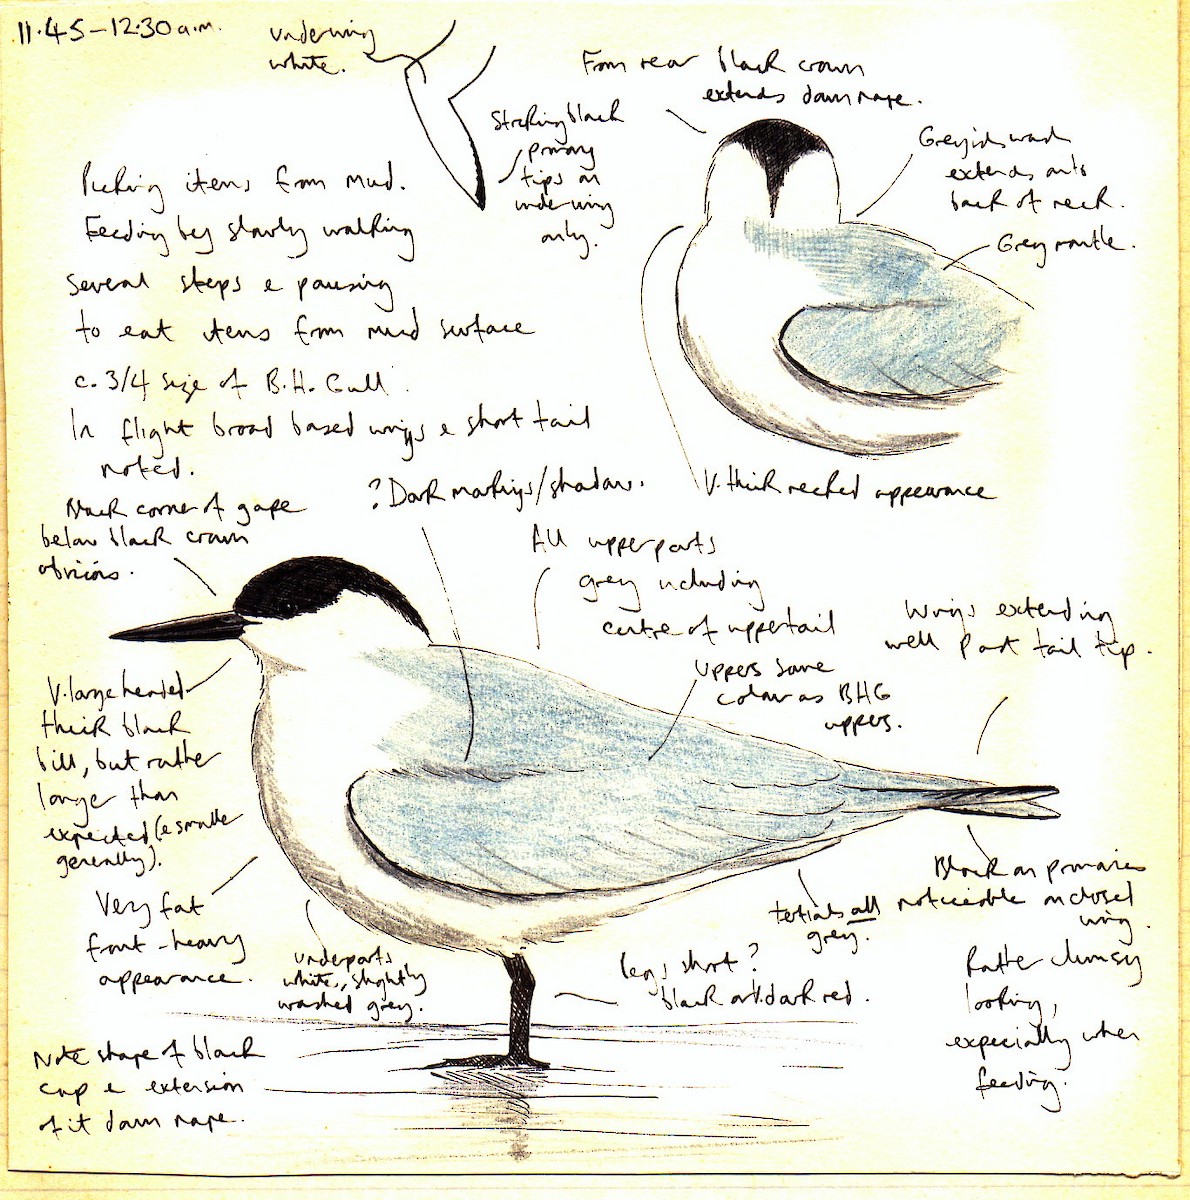 11.45-12.30 a.m.
underwing
white.
From rear black crown
extends down nape.
Striking black
primary
tips on
underwing
only.
Greyish wash
extends onto
back of neck.
Grey mantle.
Picking items from mud.
Feeding by slowly walking
several steps & pausing
to eat items from mud surface
c. 3/4 size of B.H. Gull.
In flight broad based wings & short tail
noted.
V. thick necked appearance
? Dark markings/shadow.
black corner of gape
below black crown
obvious.
All upperparts
grey including
centre of uppertail
uppers same
colour as BHG
uppers.
Wings extending
well past tail tip.
V. large headed
thick black
bill, but rather
longer than
expected (& smaller
generally).
Very fat
front-heavy
appearance.
underparts
white, slightly
washed grey.
legs short?
black or dark red.
tertials all
grey.
Black on primaries
noticeable on closed
wing.
Rather clumsy
looking,
especially when
feeding.
Note shape of black
cap & extension
of it down nape.